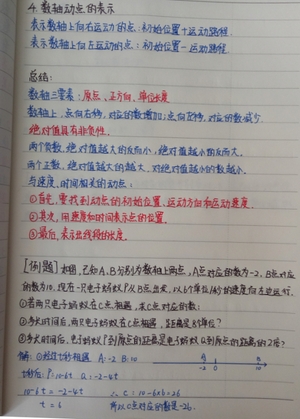 4. 数轴动点的表示
表示数轴上向右运动的点:初始位置+运动路程.
表示数轴上向左运动的点:初始位置-运动路程.
总结:
数轴三要素:原点、正方向、单位长度
数轴上,点向右移,对应的数增加;点向左移,对应的数减少.
绝对值具有非负性.
两个负数,绝对值越大的反而小,绝对值越小的反而大.
两个正数,绝对值越大的越大,对绝对值越小的数越小.
与速度、时间相关的动点:
①首先,要找到动点的初始位置、运动方向和运动速度.
②其次,用速度和时间表示点的位置.
③最后,表示出线段的长度.
[例题] 如图,已知A、B分别为数轴上两点,A点对应的数为-2,B点对应
的数为10,现有一只电子蚂蚁P从B点出发,以6个单位/秒的速度向左运动,
①若两只电子蚂蚁在C点相遇,求C点对应的数;
②多长时间后,两只电子蚂蚁
③多长时间后,电子蚂蚁P到原点的距离是电子蚂蚁Q到原点的距离的2倍?
解:①设过t秒相遇 A:-2 B:10
A B
-2 0 10
t秒后:P:10-6t Q:-2-4t
10-6t=-2-4t ∴C:10-6×6=26
t=6 所以C点对应的数是-26.